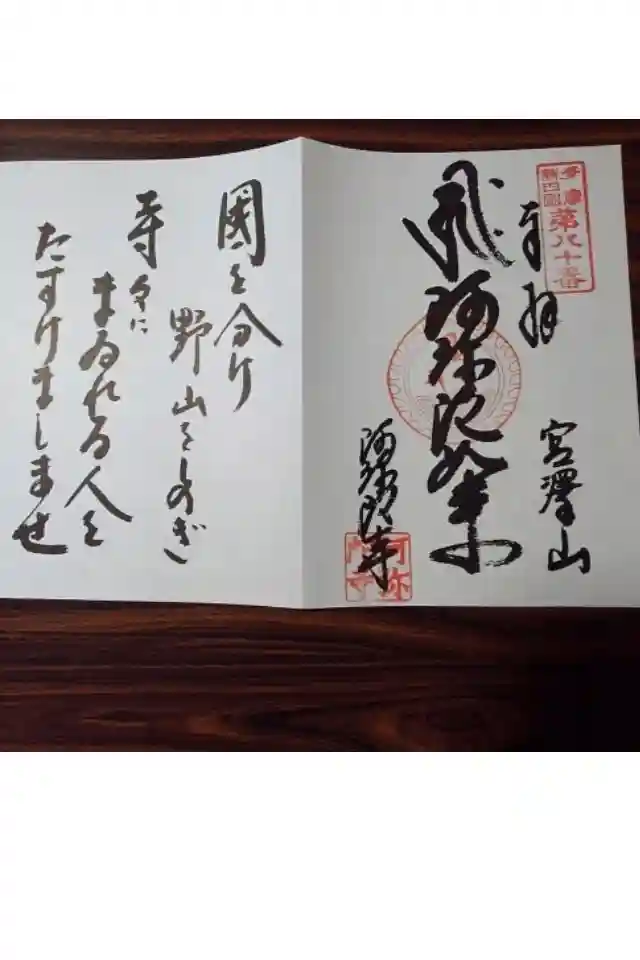 多摩
新四国
第八十番
奉拝
宮澤山
阿弥陀如来
阿弥陀寺
阿弥
陀寺
國を分け
野山をしのぎ
寺々に
まゐれる人を
たすけましませ